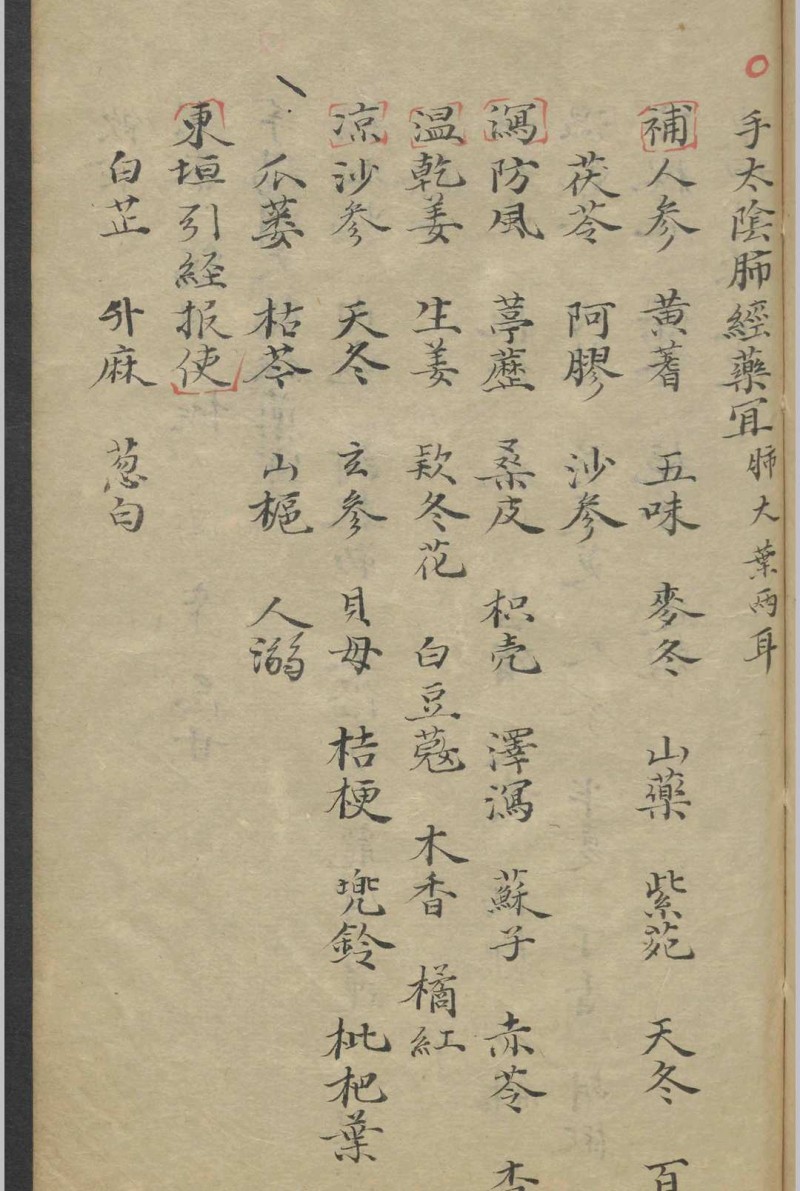 手太陰肺經藥宜 肺大葉两耳
補人参 黄蓍 五味 麥冬 山藥 紫菀 天冬 百
茯苓 阿膠 沙参
瀉防風 葶藶 桑皮 枳壳 澤瀉 蘇子 赤苓
温乾姜 生姜 款冬花 白豆蔻 木香 橘紅
凉沙参 天冬 玄参 貝母 桔梗 兜鈴 枇杷葉
瓜蒌 枯芩 山梔 人溺
東垣引経报使
白芷 升麻 葱白